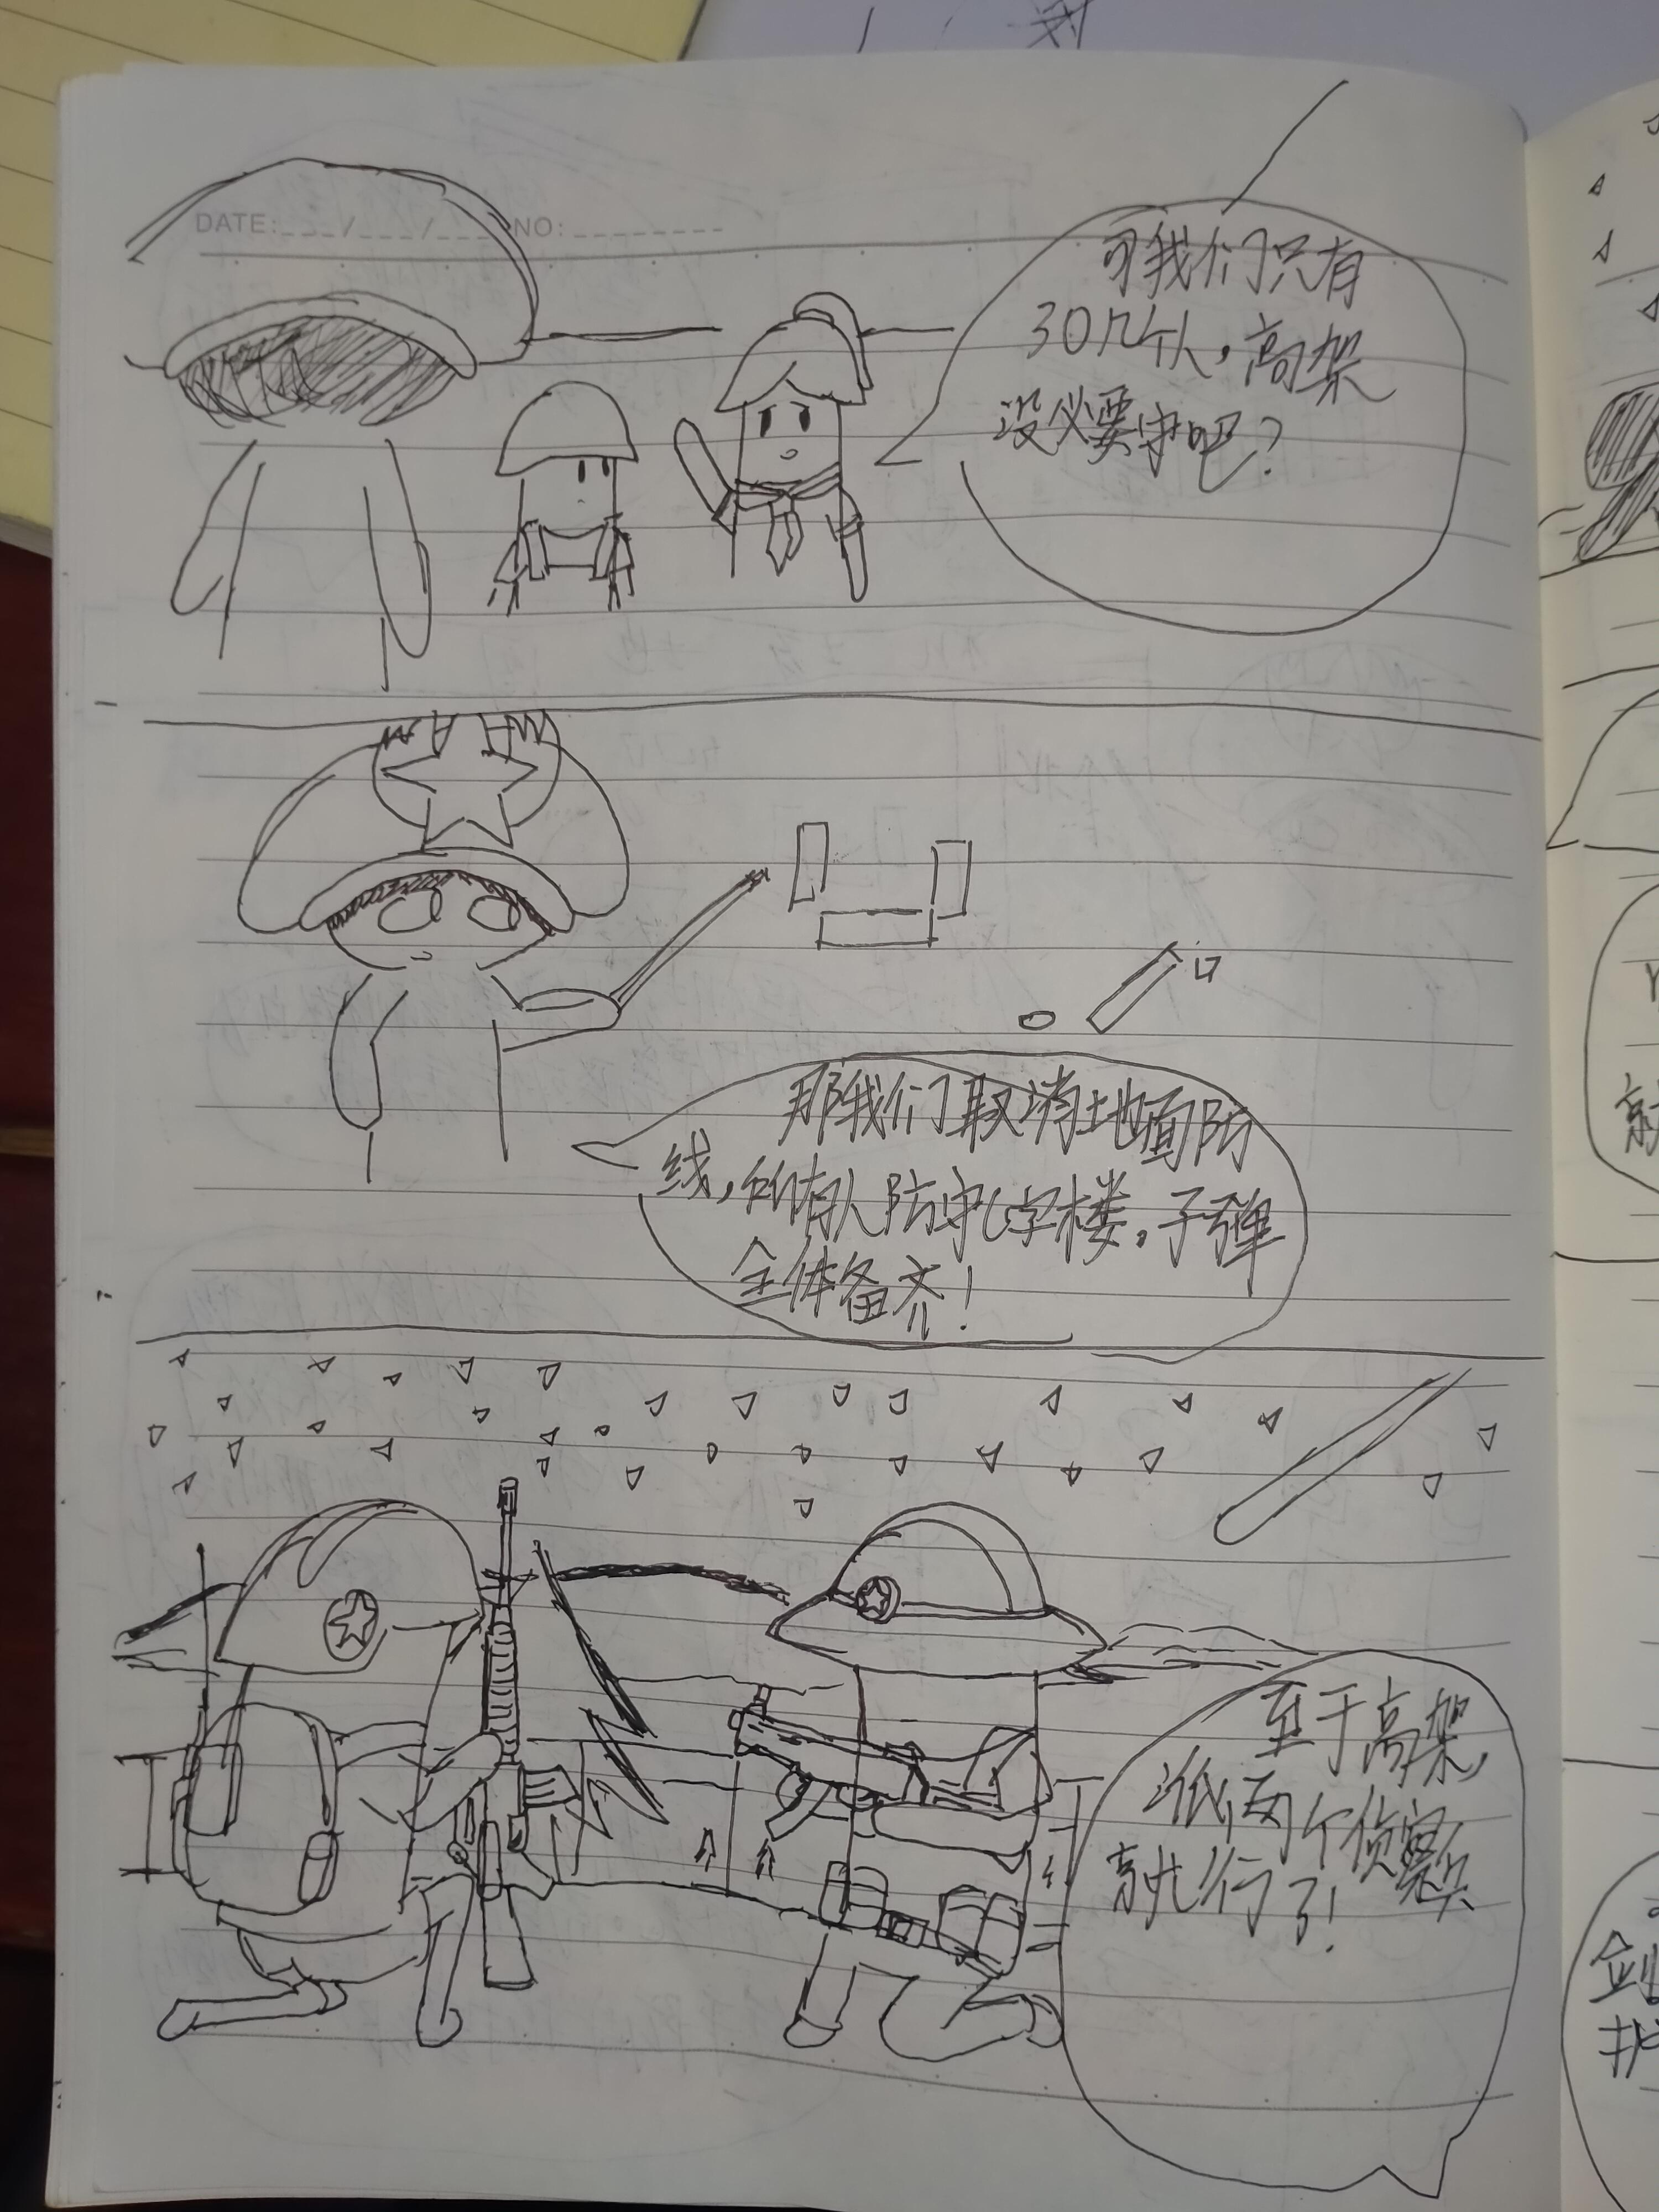 DATE:___/___/___ NO:________
可我们只有
30几个人，高架
没必要守吧？
那我们取消地面防
线，所有人防守学楼。子弹
全体备齐！
至于高架，
派两个侦察兵
就行了！